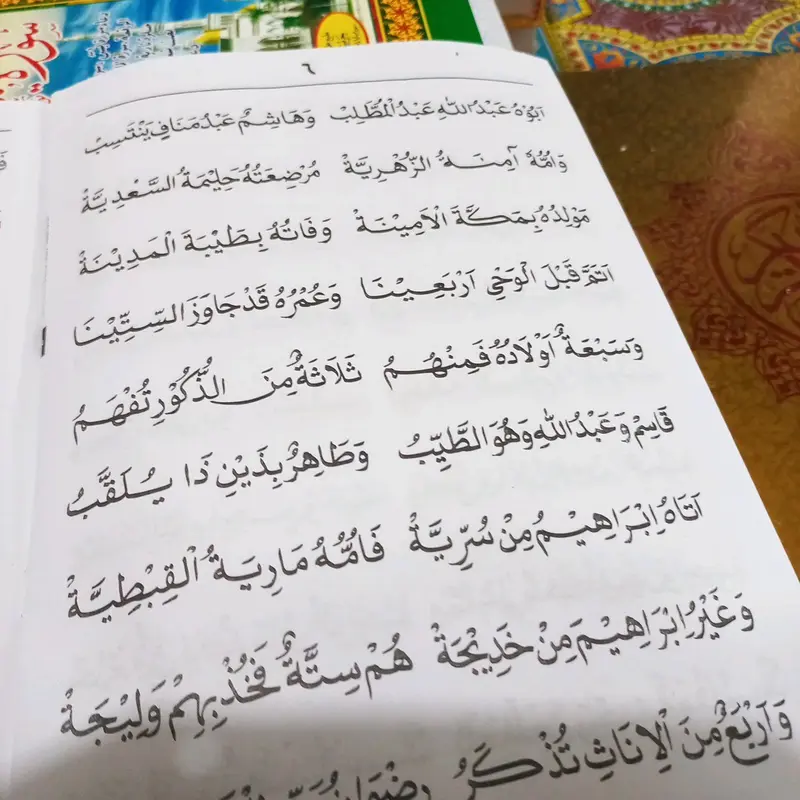 سورة
٦
اَبُوْهُ عَبْدُ اللهِ عَبْدُ الْمُطَّلِبْ وَهَاشِمٌ عَبْدُ مَنَافٍ يَنْتَسِبْ
وَاُمُّهُ آمِنَةُ الزُّهْرِيَّةْ مُرْضِعَتُهُ حَلِيْمَةُ السَّعْدِيَّةْ
مَوْلِدُهُ بِمَكَّةَ الْاَمِيْنَةْ وَفَاتُهُ بِطَيْبَةَ الْمَدِيْنَةْ
اَتَمَّ قَبْلَ الْوَحْيِ اَرْبَعِيْنَا وَعُمْرُهُ قَدْ جَاوَزَ السِّتِّيْنَا
وَسَبْعَةٌ اَوْلَادُهُ فَمِنْهُمُ ثَلَاثَةٌ مِنَ الذُّكُوْرِ تُفْهَمُ
قَاسِمْ وَعَبْدُ اللهِ وَهُوَ الطَّيِّبُ وَطَاهِرٌ بِذَيْنِ ذَا يُلَقَّبُ
اَتَاهُ اِبْرَاهِيْمُ مِنْ سُرِّيَّةْ فَاُمُّهُ مَارِيَةُ الْقِبْطِيَّةْ
وَغَيْرُ اِبْرَاهِيْمَ مِنْ خَدِيْجَةْ هُمْ سِتَّةٌ فَخُذْ بِهِمْ وَلِيْجَةْ
وَاَرْبَعٌ مِنَ الْاِنَاثِ تُذْكَرُ